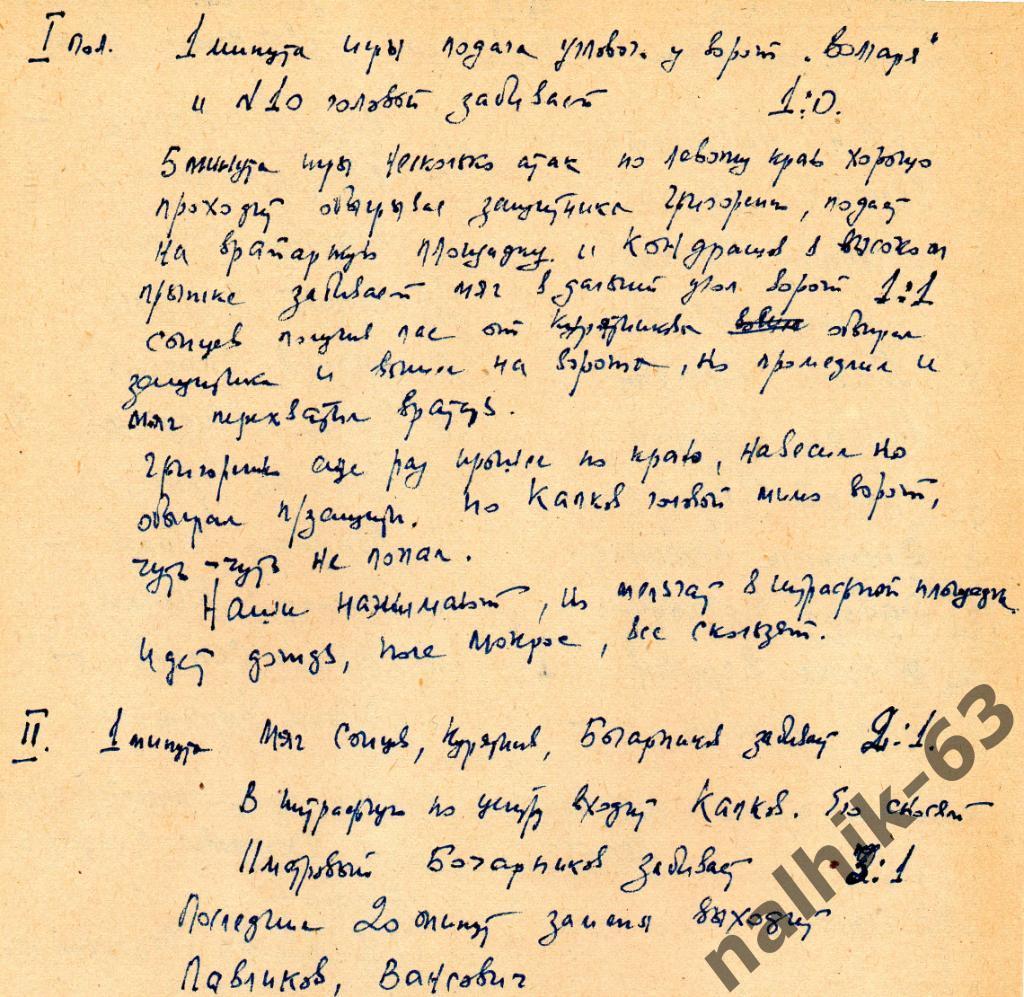 I пол. 1 минута игры подача углового у ворот „Волгаря"
и N10 головой забивает 1:0.
5 минута игры несколько атак по левому краю хорошо
проходит обыгрывае защитника Григорян, подает
на вратарскую площадку. и Кондрашов в высоком
прыжке забивает мяч в дальний угол ворот 1:1
Сонцев получив пас от Курятникова обыграл
защитника и вышел на ворота, но промедлил и
мяч перехватил вратарь.
Григорян еще раз прошел по краю, навесил но
обыграл п/защитн. Но Капков головой мимо ворот,
чуть-чуть не попал.
Наши нажимают, но мельчат в штрафной площадке
Идет дождь, поле мокрое, все скользят.
II. 1 минута Мяч Сонцев, Курятников, Богарников забивает 2:1.
В штрафную по центру входит Капков. Его сносят
11 метровый Богарников забивает 3:1
Последние 20 минут замена выходит
Павликов, Вансович
nalhik-63